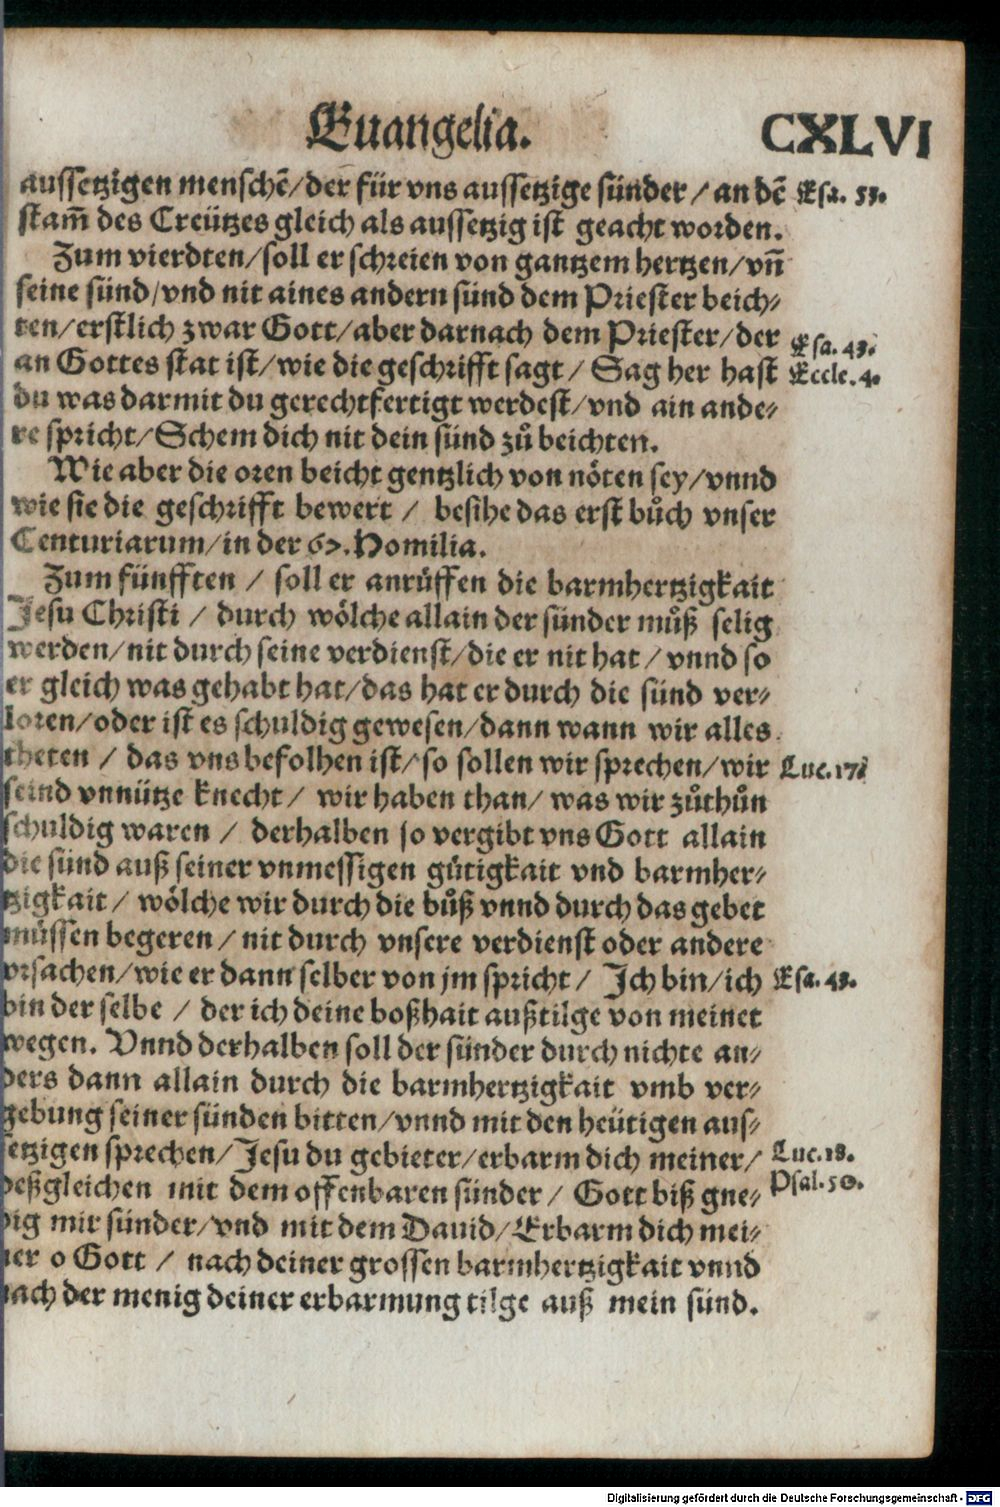 Euangelia. CXLVI
aussetzigen menschẽ/der für vns aussetzige sünder / an dẽ Esa. 53.
stam̃ des Creützes gleich als aussetzig ist geacht worden.
Zum vierdten/soll er schreien von gantzem hertzen/vñ
seine sünd/vnd nit aines andern sünd dem Priester beich⸗
ten/erstlich zwar Gott/aber darnach dem Priester/der Esa. 43.
an Gottes stat ist/wie die geschrifft sagt / Sag her hast Eccle. 4.
du was darmit du gerechtfertigt werdest/vnd ain ande⸗
re spricht/Schem dich nit dein sünd zů beichten.
Wie aber die oren beicht gentzlich von nöten sey/vnnd
wie sie die geschrifft bewert / besihe das erst bůch vnser
Centuriarum/in der 67. Homilia.
Zum fünfften / soll er anrůffen die barmhertzigkait
Jesu Christi / durch wölche allain der sünder můß selig
werden/nit durch seine verdienst/die er nit hat / vnnd so
er gleich was gehabt hat/das hat er durch die sünd ver⸗
loren/oder ist es schuldig gewesen/dann wann wir alles
theten / das vns befolhen ist/so sollen wir sprechen/wir Luc. 17.
seind vnnütze knecht / wir haben than/ was wir zůthůn
schuldig waren / derhalben so vergibt vns Gott allain
die sünd auß seiner vnmessigen gůtigkait vnd barmher⸗
tzigkait / wölche wir durch die bůß vnnd durch das gebet
můssen begeren / nit durch vnsere verdienst oder andere
vrsachen/wie er dann selber von jm spricht / Ich bin/ich Esa. 43.
bin der selbe / der ich deine boßhait außtilge von meinet
wegen. Vnnd derhalben soll der sünder durch nichte an⸗
ders dann allain durch die barmhertzigkait vmb ver⸗
gebung seiner sünden bitten/vnnd mit den heütigen aus⸗
setzigen sprechen/Jesu du gebieter/erbarm dich meiner/ Luc. 18.
deßgleichen mit dem offenbaren sünder / Gott biß gne⸗ Psal. 50.
dig mir sünder/vnd mit dem Dauid/Erbarm dich mei⸗
ner o Gott / nach deiner grossen barmhertzigkait vnnd
nach der menig deiner erbarmung tilge auß mein sünd.
Digitalisierung gefördert durch die Deutsche Forschungsgemeinschaft - DFG